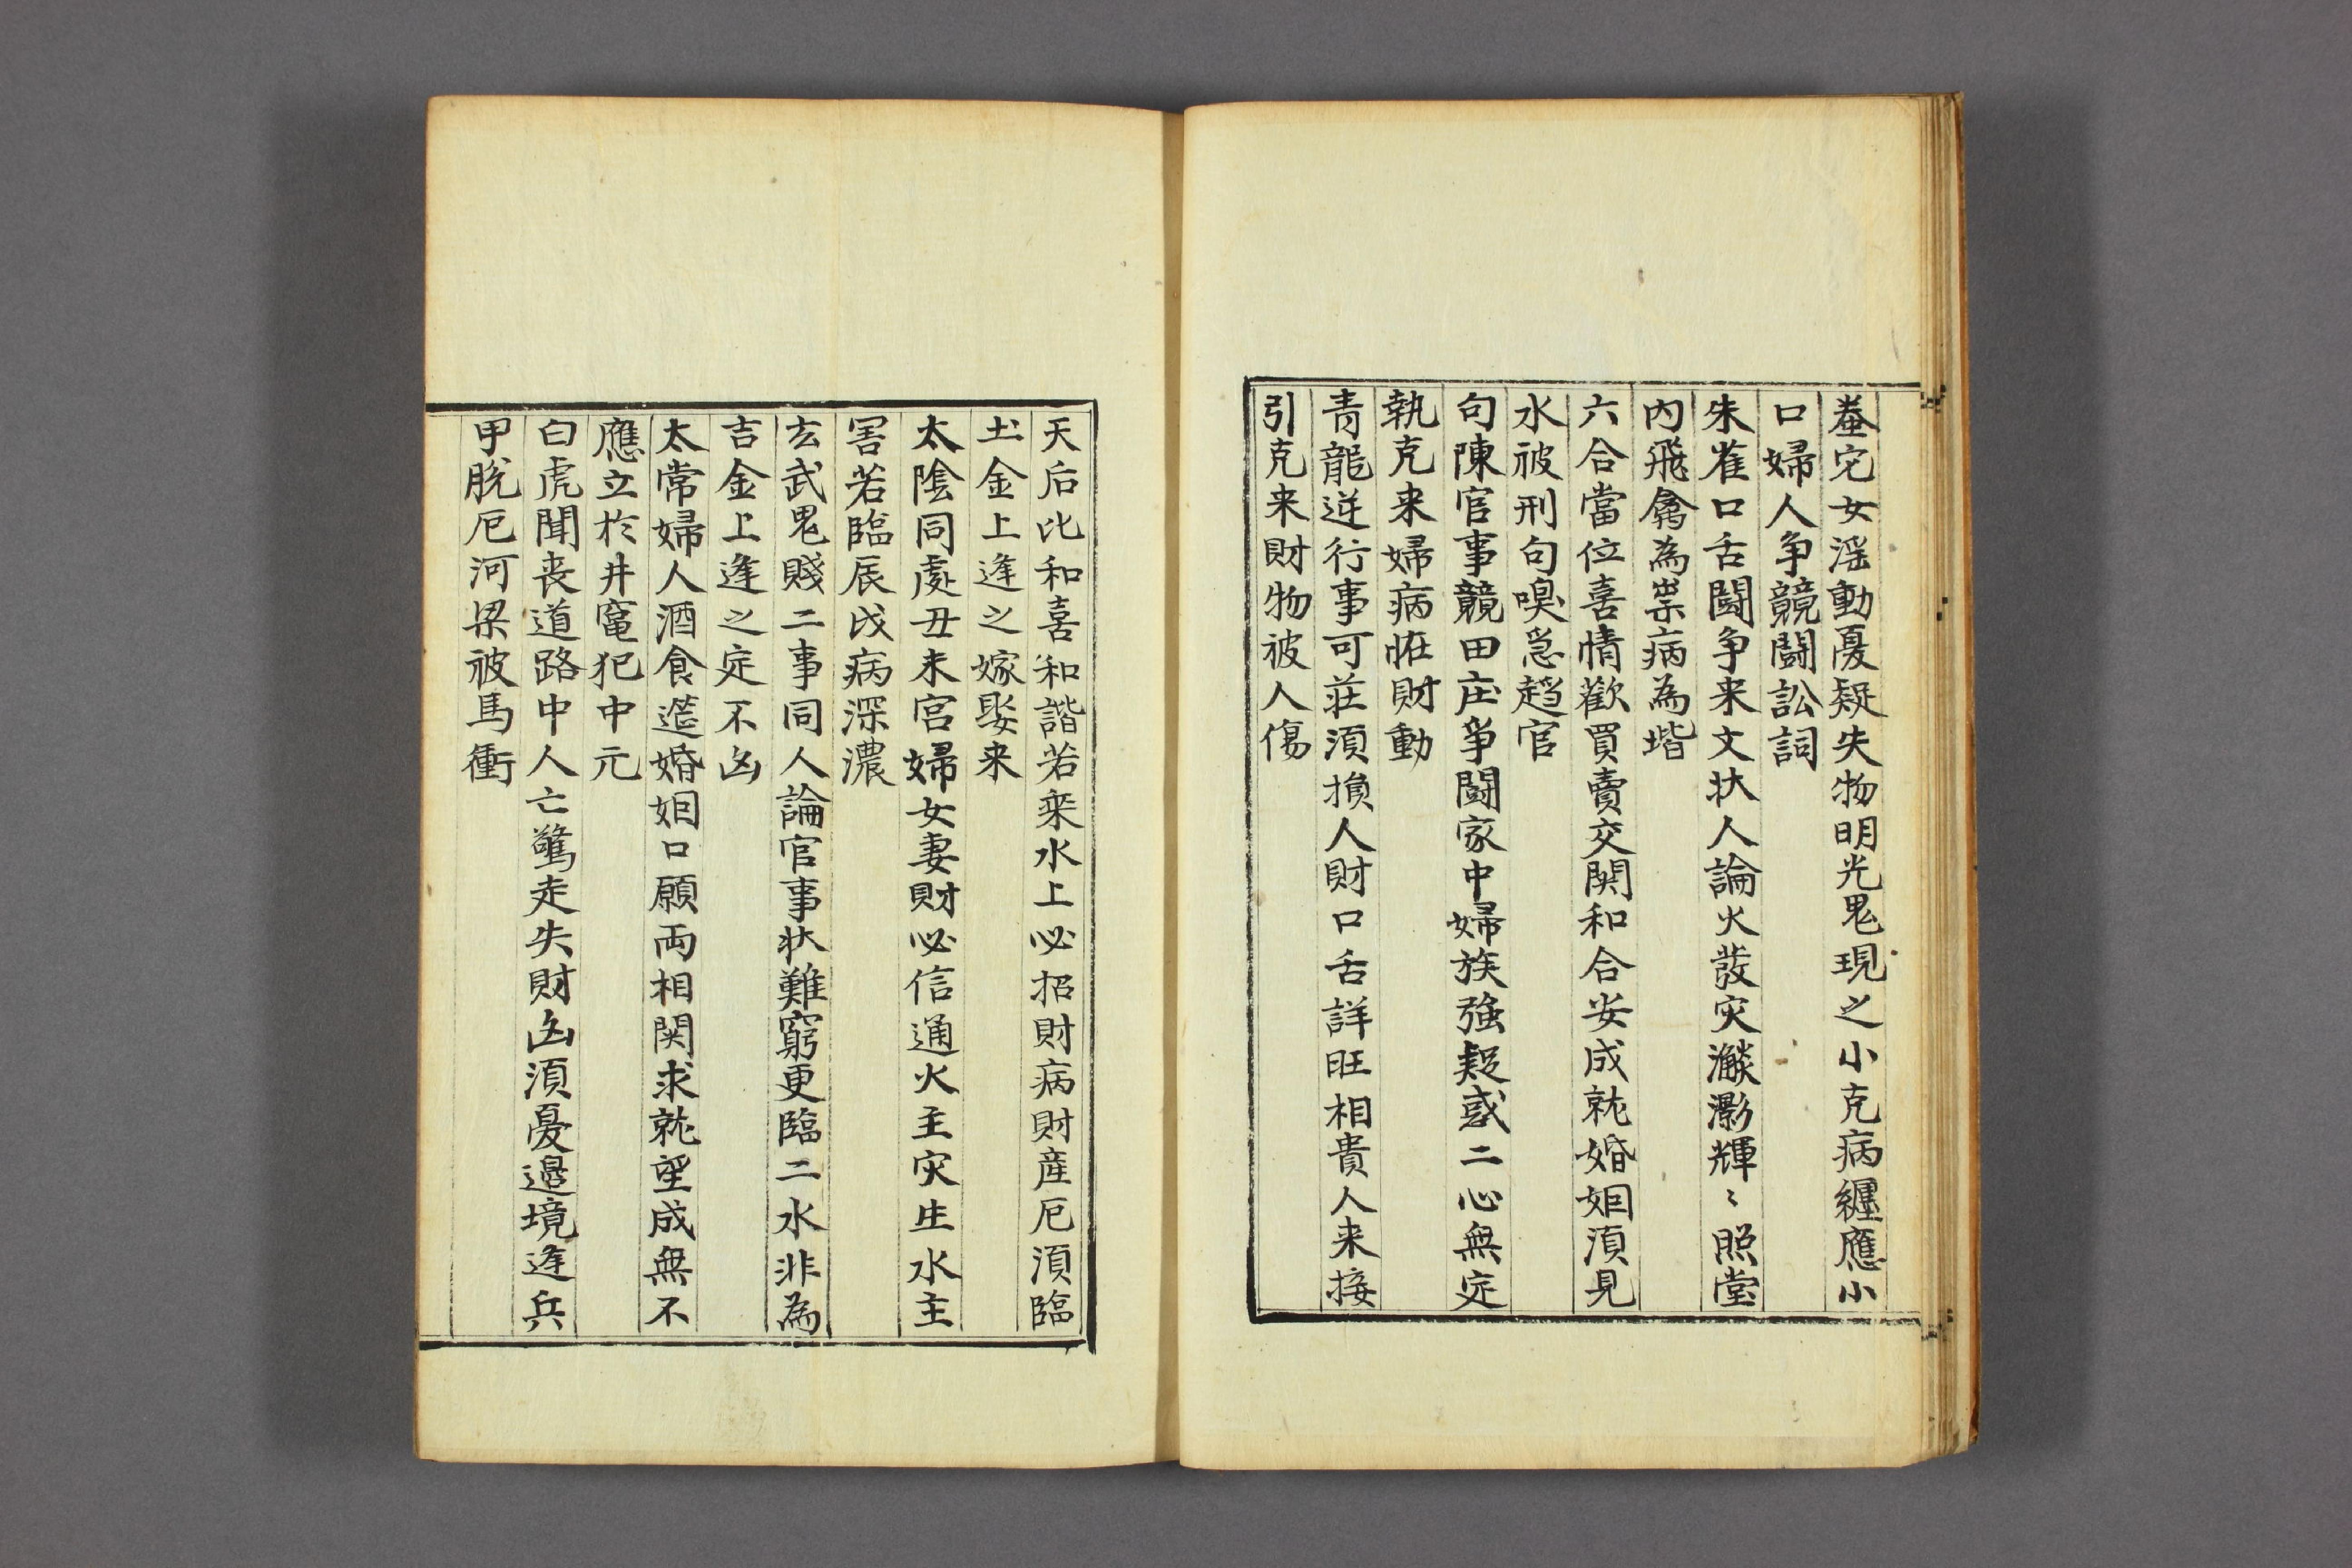 螣蛇女淫動憂疑失物明光鬼現之小克病纏應小
口婦人争競鬪訟詞
朱雀口舌鬪争来文状人論火發灾瀲灧輝〻照堂
内飛禽為祟病為堦
六合當位喜情歡買賣交関和合安成就婚姻湏見
水被刑句嗅怠趋官
句陳官事競田庄爭鬪家中婦族強疑惑二心無定
執克来婦病恠財動
青龍逆行事可莊湏損人財口舌詳旺相貴人来接
引克来財物被人傷
天后比和喜和諧若乘水上必招財病財産厄湏臨
土金上逢之嫁娶来
太陰同處丑未宫婦女妻財必信通火主灾生水主
害若臨辰戌病深濃
玄武鬼賤二事同人論官事状難窮更臨二水非為
吉金上逢之定不凶
太常婦人酒食筵婚姻口願両相関求就望成無不
應立於井竈犯中元
白虎聞丧道路中人亡驚走失財凶湏憂邉境逢兵
甲脱厄河梁被馬衝